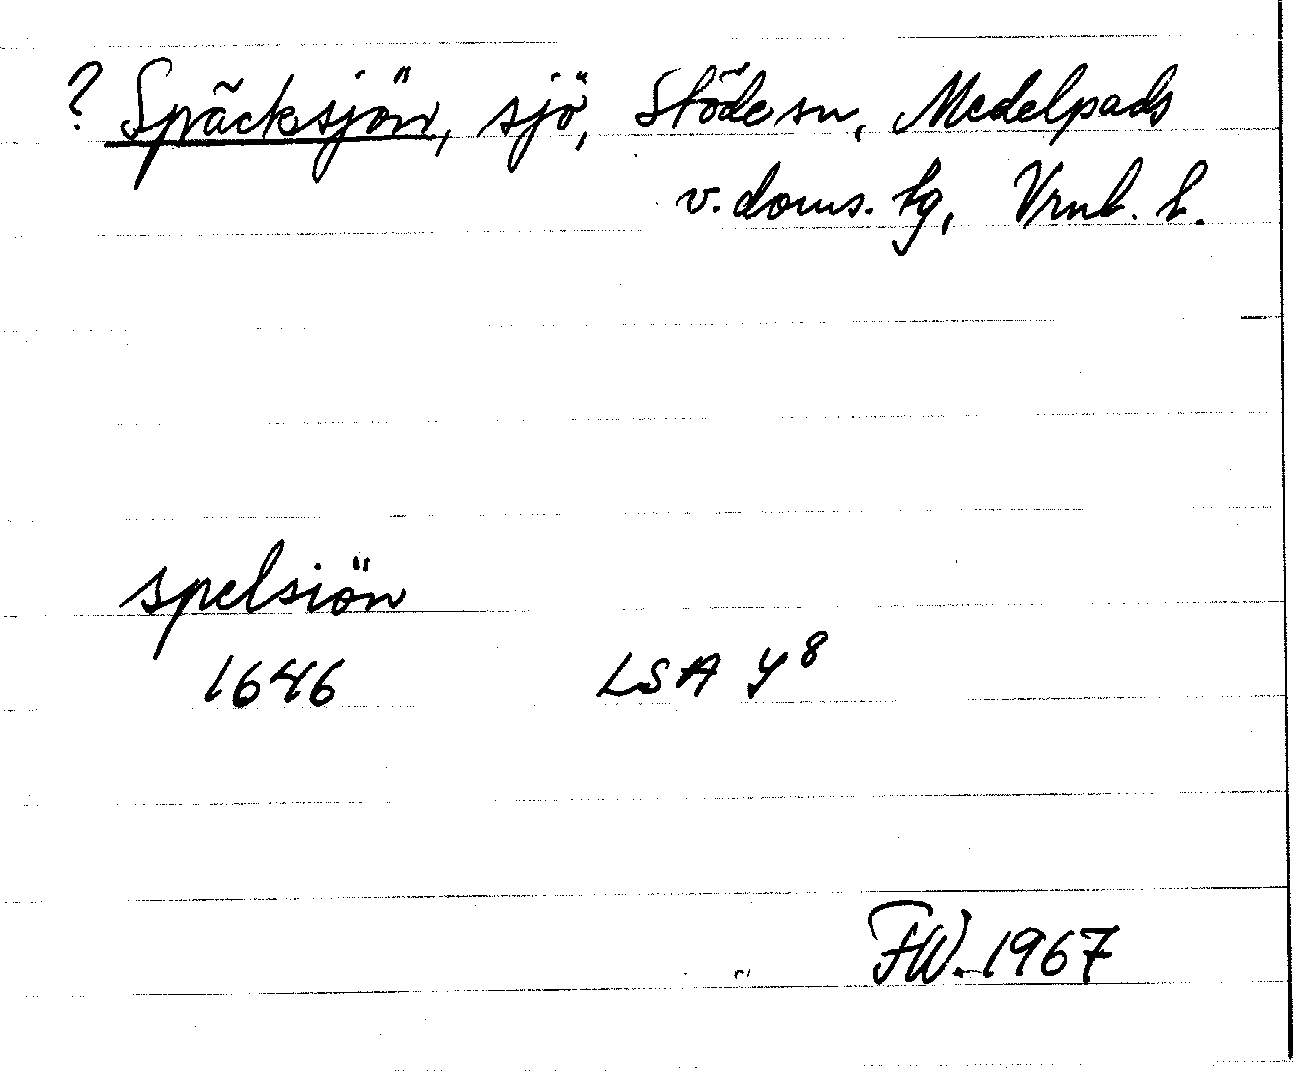 ? Späcksjön, sjö, Stöde sn, Medelpads
v. doms. tg, Vrnl. l.
spelsiön
1646 LSA Y8
FW. 1967